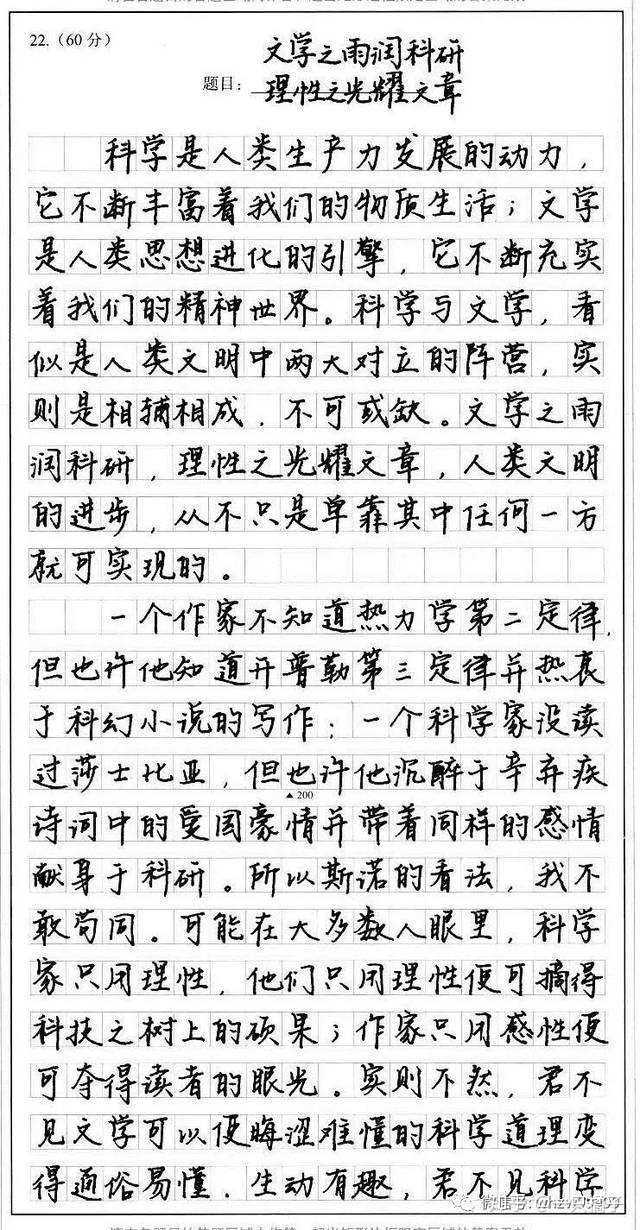 22.（60分）
文学之雨润科研
题目：理性之光耀文章
科学是人类生产力发展的动力，
它不断丰富着我们的物质生活；文学
是人类思想进化的引擎，它不断充实
着我们的精神世界。科学与文学，看
似是人类文明中两大对立的阵营，实
则是相辅相成，不可或缺。文学之雨
润科研，理性之光耀文章，人类文明
的进步，从不只是单靠其中任何一方
就可实现的。
一个作家不知道热力学第二定律，
但也许他知道开普勒第三定律并热衷
于科幻小说的写作；一个科学家没读
过莎士比亚，但也许他沉醉于辛弃疾
▲200
诗词中的爱国豪情并带着同样的感情
献身于科研。所以斯诺的看法，我不
敢苟同。可能在大多数人眼里，科学
家只用理性，他们只用理性便可摘得
科技之树上的硕果；作家只用感性便
可夺得读者的眼光。实则不然，君不
见文学可以使晦涩难懂的科学道理变
得通俗易懂，生动有趣，君不见科学
微信号: